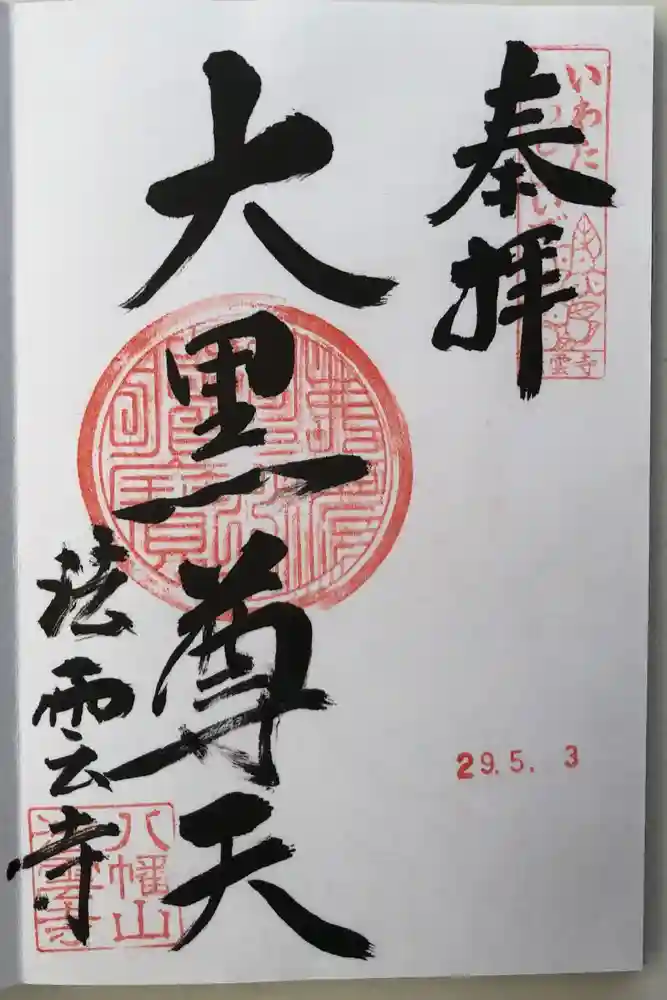 奉拝
いわた
雲寺
大黒尊天
29.5.3
法雲寺
八幡山
法雲寺